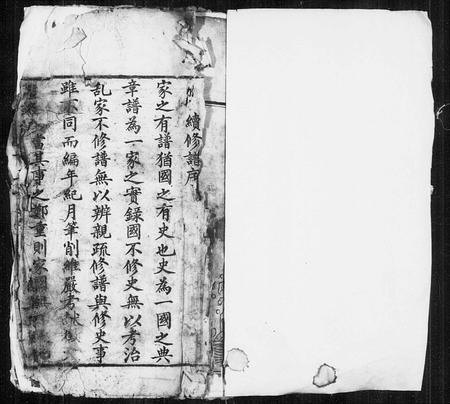 續修譜序
家之有譜猶國之有史也史為一國之典
章譜為一家之實錄國不修史無以考治
乱家不修譜無以辨親疏修譜與修史事
雖不同而編年紀月筆削維嚴考
當其事之鄭重則家國